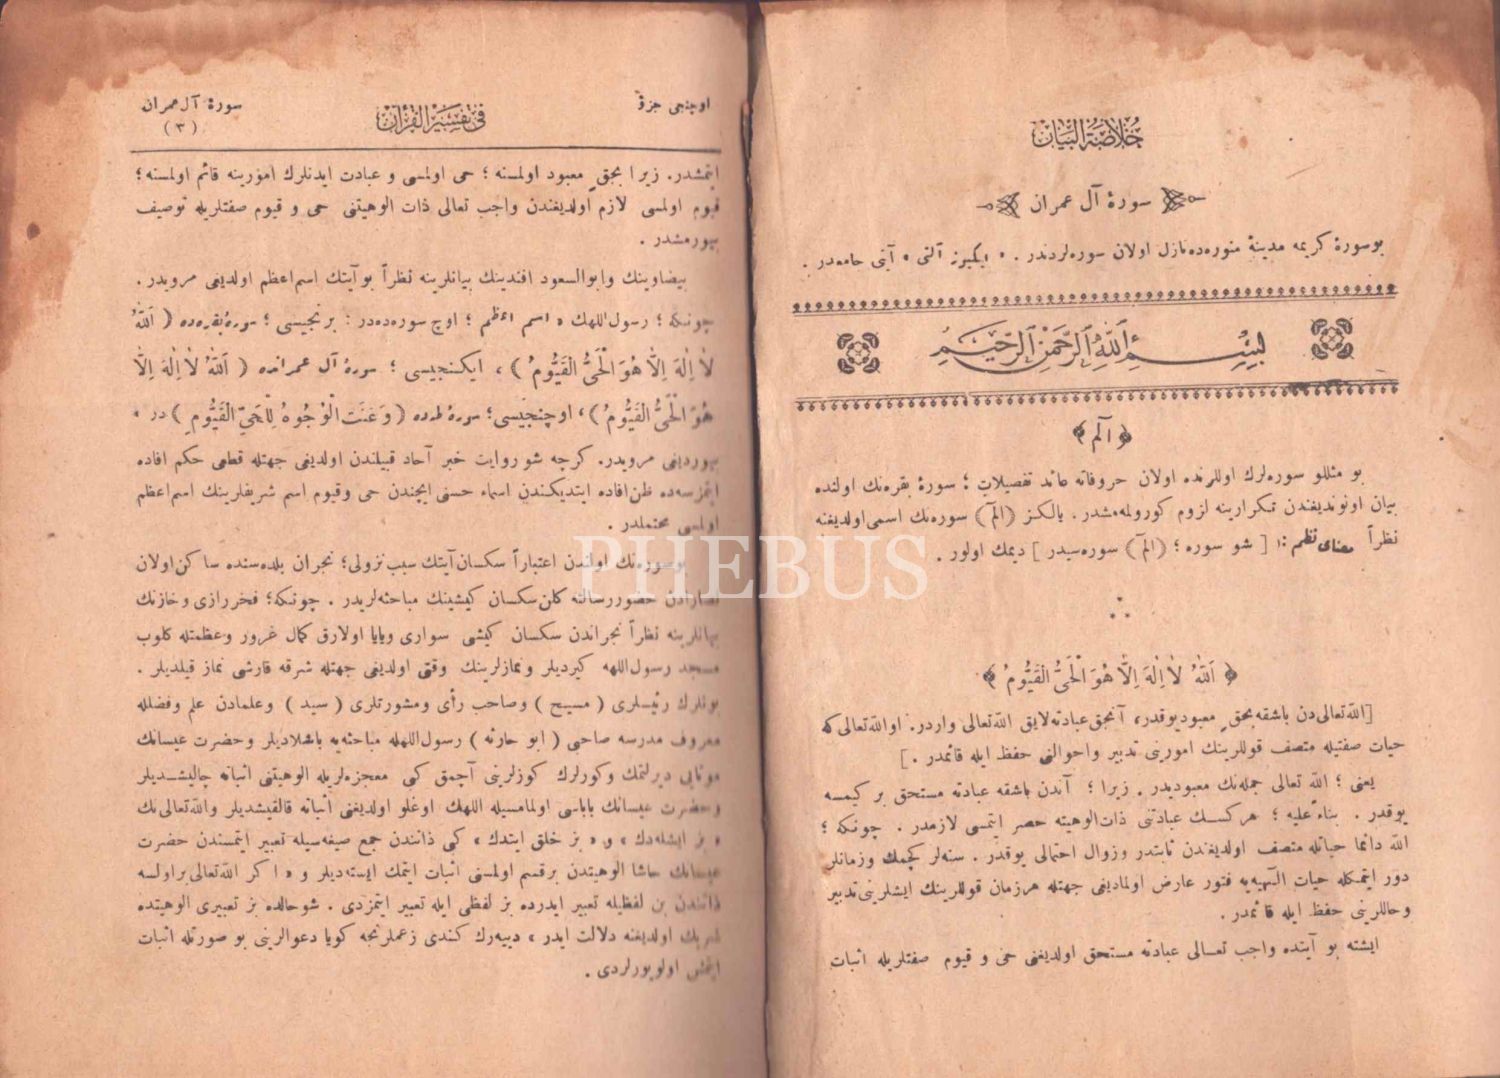 خلاصة البيان
سورۀ آل عمران
بوسورۀ كريمه مدينۀ منوره‌ده نازل اولان سوره‌لردندر . « ايكيوز آلتى » آيتى جامعدر .
بِسْمِ اللّٰهِ الرَّحْمٰنِ الرَّحِيمِ
﴿ الٓمٓ ﴾
بو مثللو سوره‌لرك اوللرنده اولان حروفاته عائد تفصيلات ؛ سورۀ بقره‌نك اولنده
بيان اولونديغندن تكرارينه لزوم كورولمه‌مشدر . يالكز (الٓمٓ) سوره‌نك اسمى اولديغنه
نظراً معناى نظم : [ شو سوره ؛ (الٓمٓ) سوره‌سيدر ] ديمك اولور .
﴿ اَللّٰهُ لَا اِلٰهَ اِلَّا هُوَ الْحَىُّ الْقَيُّومُ ﴾
[اللّٰه تعالى‌دن باشقه بحقٍ معبود يوقدر، آنجق عبادته لايق اللّٰه تعالى واردر. او اللّٰه تعالى كه
حيات صفتيله متصف قوللرينك امورينى تدبير واحوالنى حفظ ايله قائمدر .]
يعنى ؛ اللّٰه تعالى جمله‌نك معبوديدر . زيرا ؛ آندن باشقه عبادته مستحق بر كيمسه
يوقدر . بناءً عليه ؛ هركسك عبادتنى ذات الوهيته حصر ايتمسى لازمدر . چونكه ؛
اللّٰه دائما حياتله متصف اولديغندن ثابتدر وزوال احتمالى يوقدر . سنه‌لر كچمك وزمانلر
دور ايتمكله حيات الٰهيه‌يه فتور عارض اولماديغى جهتله هرزمان قوللرينك ايشلرينى تدبير
وحاللرينى حفظ ايله قائمدر .
ايشته بو آيتده واجب تعالى عبادته مستحق اولديغنى حى و قيوم صفتلريله اثبات
اوچنجى جزؤ
فى تفسير القرآن
سورۀ آل عمران
( ٣ )
ايتمشدر. زيرا بحقٍ معبود اولمسنه ؛ حى اولمسى و عبادت ايدنلرك امورينه قائم اولمسنه ؛
قيوم اولمسى لازم اولديغندن واجب تعالى ذات الوهيتنى حى و قيوم صفتلريله توصيف
بيورمشدر .
بيضاوينك وابوالسعود افندينك بيانلرينه نظراً بو آيتك اسم اعظم اولديغى مرويدر .
چونكه ؛ رسول اللّٰهك « اسم اعظم ؛ اوچ سوره‌ده‌در : برنجيسى ؛ سورۀ بقره‌ده ( اَللّٰهُ
لَا اِلٰهَ اِلَّا هُوَ الْحَىُّ الْقَيُّومُ ) ، ايكنجيسى ؛ سورۀ آل عمرانده ( اَللّٰهُ لَا اِلٰهَ اِلَّا
هُوَ الْحَىُّ الْقَيُّومُ ) ، اوچنجيسى ؛ سورۀ طه‌ده ( وَعَنَتِ الْوُجُوهُ لِلْحَىِّ الْقَيُّومِ ) در »
بيورديغى مرويدر. كرچه شو روايت خبر آحاد قبيلندن اولديغى جهتله قطعى حكم افاده
ايتمزسه‌ده ظن افاده ايتديكندن اسماء حسنى ايچندن حى وقيوم اسم شريفلرينك اسم اعظم
اولمسى محتملدر .
بوسوره‌نك اولندن اعتباراً سكسان آيتك سبب نزولى؛ نجران بلده‌سنده ساكن اولان
نصارادن حضور رسالته كلن سكسان كيشينك مباحثه‌لريدر . چونكه؛ فخر رازى و خازنك
بيانلرينه نظراً نجراندن سكسان كيشى سوارى وپايا اولارق كمال غرور وعظمتله كلوب
مسجد رسول اللّٰهه كيرديلر ونمازلرينك وقتى اولديغى جهتله شرقه قارشى نماز قيلديلر .
بونلرك رئيسلرى ( مسيح ) وصاحب رأى ومشورتلرى ( سيد ) وعلمادن علم وفضلله
معروف مدرسه صاحبى ( ابو حارثه ) رسول اللّٰهله مباحثه‌يه باشلاديلر وحضرت عيسانك
موتايى ديرلتمك وكورلرك كوزلرينى آچمق كبى معجزه‌لريله الوهيتنى اثباته چاليشديلر
وحضرت عيسانك باباسى اولمامسيله اللّٰهك اوغلو اولديغنى اثباته قالقيشديلر واللّٰه تعالى‌نك
« بز ايشله‌دك » و « بز خلق ايتدك » كبى ذاتندن جمع صيغه‌سيله تعبير ايتمسندن حضرت
عيسانك حاشا الوهيتدن برقسم اولمسنى اثبات ايتمك ايسته‌ديلر و « اكر اللّٰه تعالى براولسه
ذاتندن بن لفظيله تعبير ايدرده بز لفظى ايله تعبير ايتمزدى . شوحالده بز تعبيرى الوهيتده
شريك اولديغنه دلالت ايدر » دييه‌رك كندى زعملرنجه كويا دعوالرينى بو صورتله اثبات
ايتمش اولويورلردى .
PHEBUS